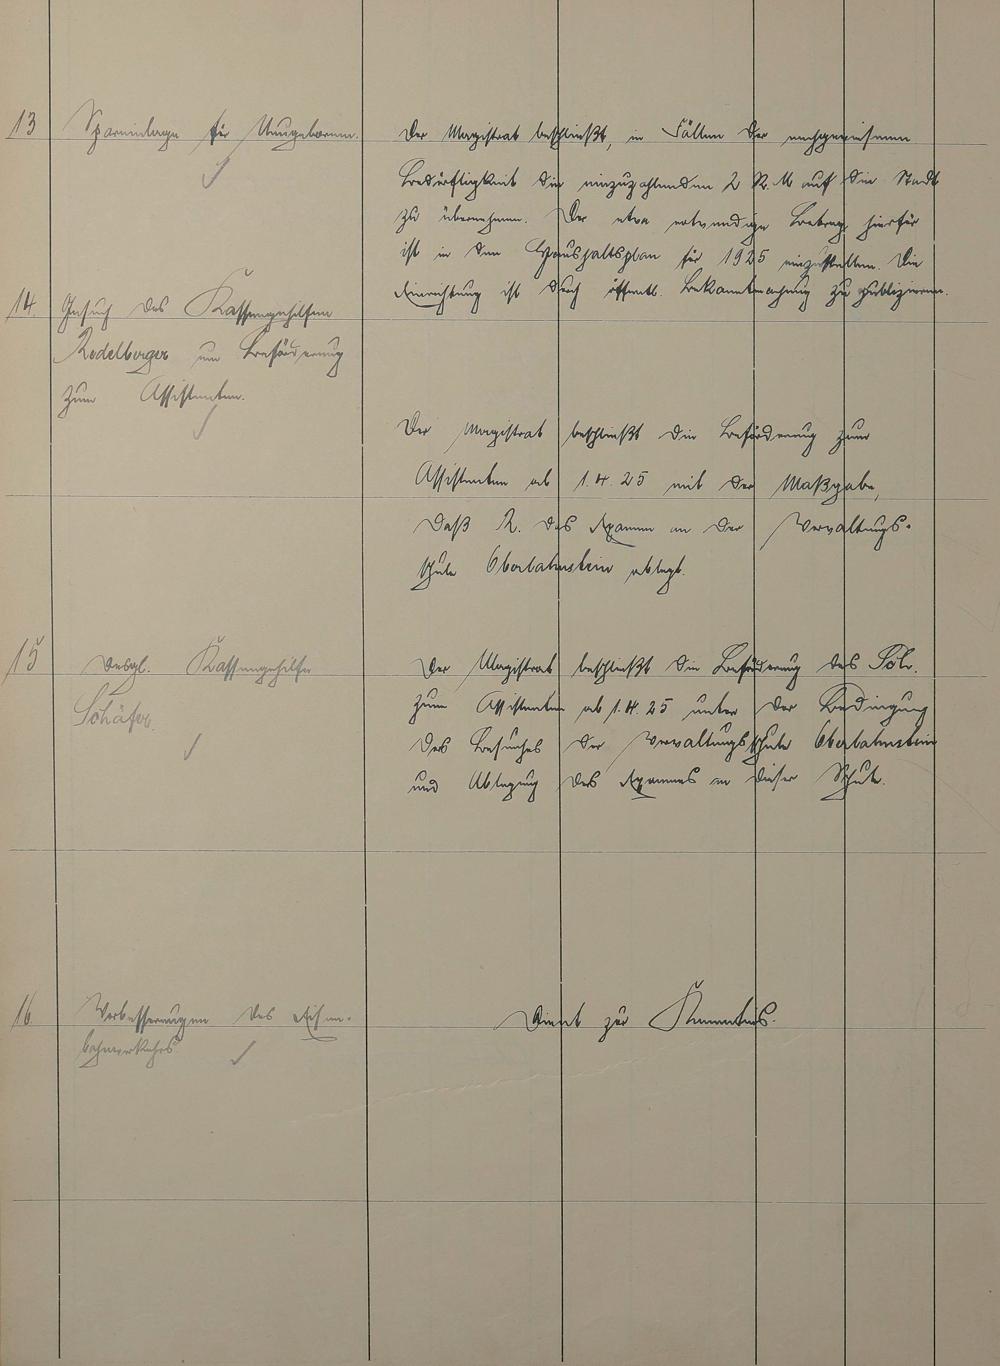 13 Spareinlage für Neugeborene.
Der Magistrat beschließt, in Fällen der nachgewiesenen
Bedürftigkeit die einzuzahlenden 2 R.M auf die Stadt
zu übernehmen. Der etwa notwendige Betrag hierfür
ist in den Haushaltsplan für 1925 einzustellen. Die
Einrichtung ist durch öffentl. Bekanntmachung zu publizieren.
14. Gesuch des Kassengehilfen
Redelberger um Beförderung
zum Assistenten.
Der Magistrat beschließt die Beförderung zum
Assistenten ab 1.4.25 mit der Maßgabe,
daß R. das Examen an der Verwaltungs-
schule Oberlahnstein ablegt.
15 Desgl. Kassengehilfe
Schäfer.
Der Magistrat beschließt die Beförderung des Sch.
zum Assistenten ab 1.4.25 unter der Bedingung
des Besuches der Verwaltungsschule Oberlahnstein
und Ablegung des Examens an dieser Schule.
16 Verbesserungen des Eisen-
bahnverkehrs
Dient zur Kenntnis.